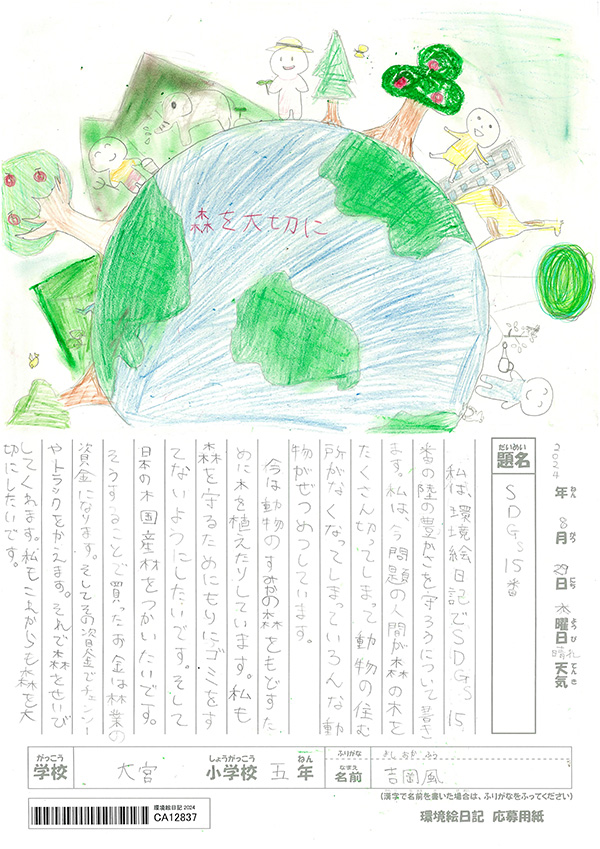 森を大切に
2024年 8月 29日 木曜日 晴れ 天気
ねん がつ にち ようび てんき
だいめい
題名
SDGs 15番
私は、環境絵日記でSDGs 15
番の陸の豊かさを守ろうについて書き
ます。私は、今問題の人間が森の木を
たくさん切ってしまって動物の住む
所がなくなってしまっていろんな動
物がぜつめつしています。
今は動物のすみかの森をもどすた
めに木を植えたりしています。私も
森を守るためにもりにゴミをす
てないようにしたいです。そして
日本の木国産材をつかいたいです。
そうすることで買ったお金は林業の
資金になります。そしてその資金でチェンソー
やトラックをかえます。それで森をせいび
してくれます。私もこれからも森を大
切にしたいです。
がっこう しょうがっこう ねん ふりがな よしおか ふう
学校 大宮 小学校 五 年 なまえ 名前 吉岡風
(漢字で名前を書いた場合は、ふりがなをふってください)
環境絵日記 2024
CA12837
環境絵日記 応募用紙